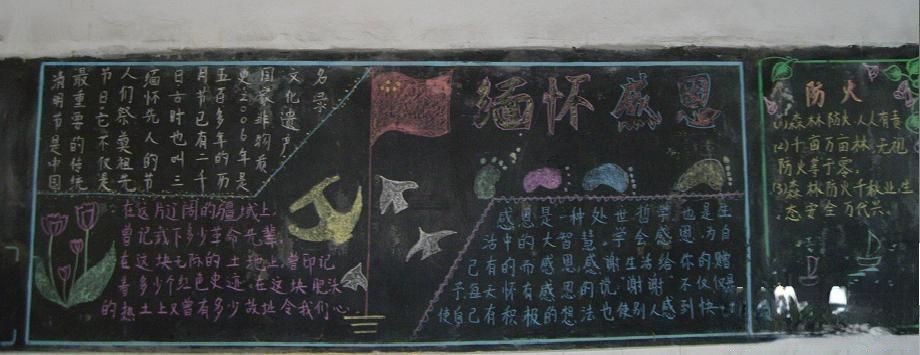 清明节是中国
最重要的传统
节日它不仅是
人们祭奠祖先
缅怀先人的节
日古时也叫三
月节已有二千
五百多年的历
史2006年是
国家非物质
文化遗产
名录
缅怀感恩
在这片辽阔的疆域上,
曾记载下多少革命先辈,
在这块无际的土地上,曾印记
着多少个红色史迹。在这块
的热土上又曾有多少故址令我们心
感恩是一种处世哲学,也是生
活中的大智慧。学会感恩,为自
己有的而感恩,感谢生活给你的赠
予,每天怀有感恩的说"谢谢"不仅仅是
使自己有积极的想法也使别人感到快
防火
(1)森林防火人人有责
(2)千亩万亩林,无祖
防火等于零。
(3)森林防火千秋业,生
态安全万代兴.